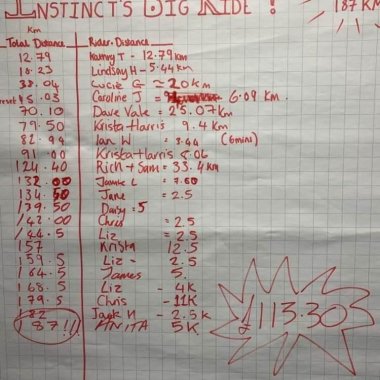 INSTINCT'S BIG RIDE !
187 KM
Km
Total Distance Rider. Distance
12.79 Kamry T - 12.79km
18.23 Lindsay H - 5.44km
38.04 Lucie G ≈ 20km
reset 45.03 Caroline J = 6.09 km.
70.10 Dave Vale = 25.07km
79.50 Krista Harris 9.4km
82.94 Ian W = 3.44 (6mins)
91.00 Krista Harris 8.06
124.40 Rich + Sam = 33.4km
132.00 Jamie L = 7.60
134.50 Jane = 2.5
139.50 Daisy = 5
142.00 Chris = 2.5
144.5 Liz = 2.5
157 Krista 12.5
159.5 Liz - 2.5
164.5 James 5.
168.5 Liz - 4K
179.5 Chris - 11K
182 Jack H - 2.5k
187!!! ANITA 5K
£113.30